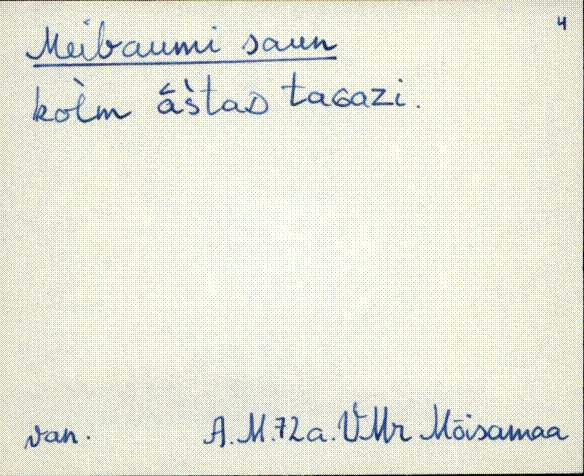 4
Meibaumi saun
kòlm áštaᴅ taɢazi.
van. A.M. 72 a. VMr Mõisamaa